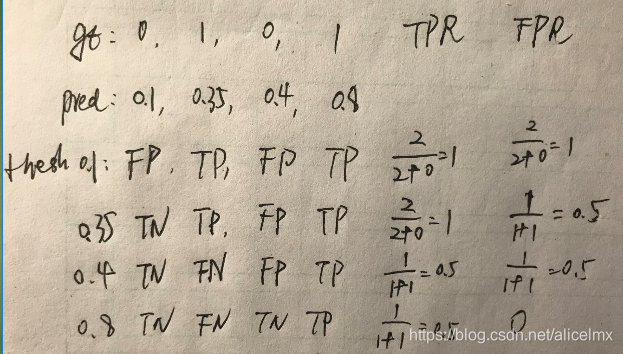 gt: 0, 1, 0, 1 TPR FPR
pred: 0.1, 0.35, 0.4, 0.8
thresh 0.1: FP, TP, FP TP 2/(2+0)=1 2/(2+0)=1
0.35 TN TP, FP TP 2/(2+0)=1 1/(1+1)=0.5
0.4 TN FN FP TP 1/(1+1)=0.5 1/(1+1)=0.5
0.8 TN FN TN TP 1/(1+1)=0.5 0
https://blog.csdn.net/alicelmx